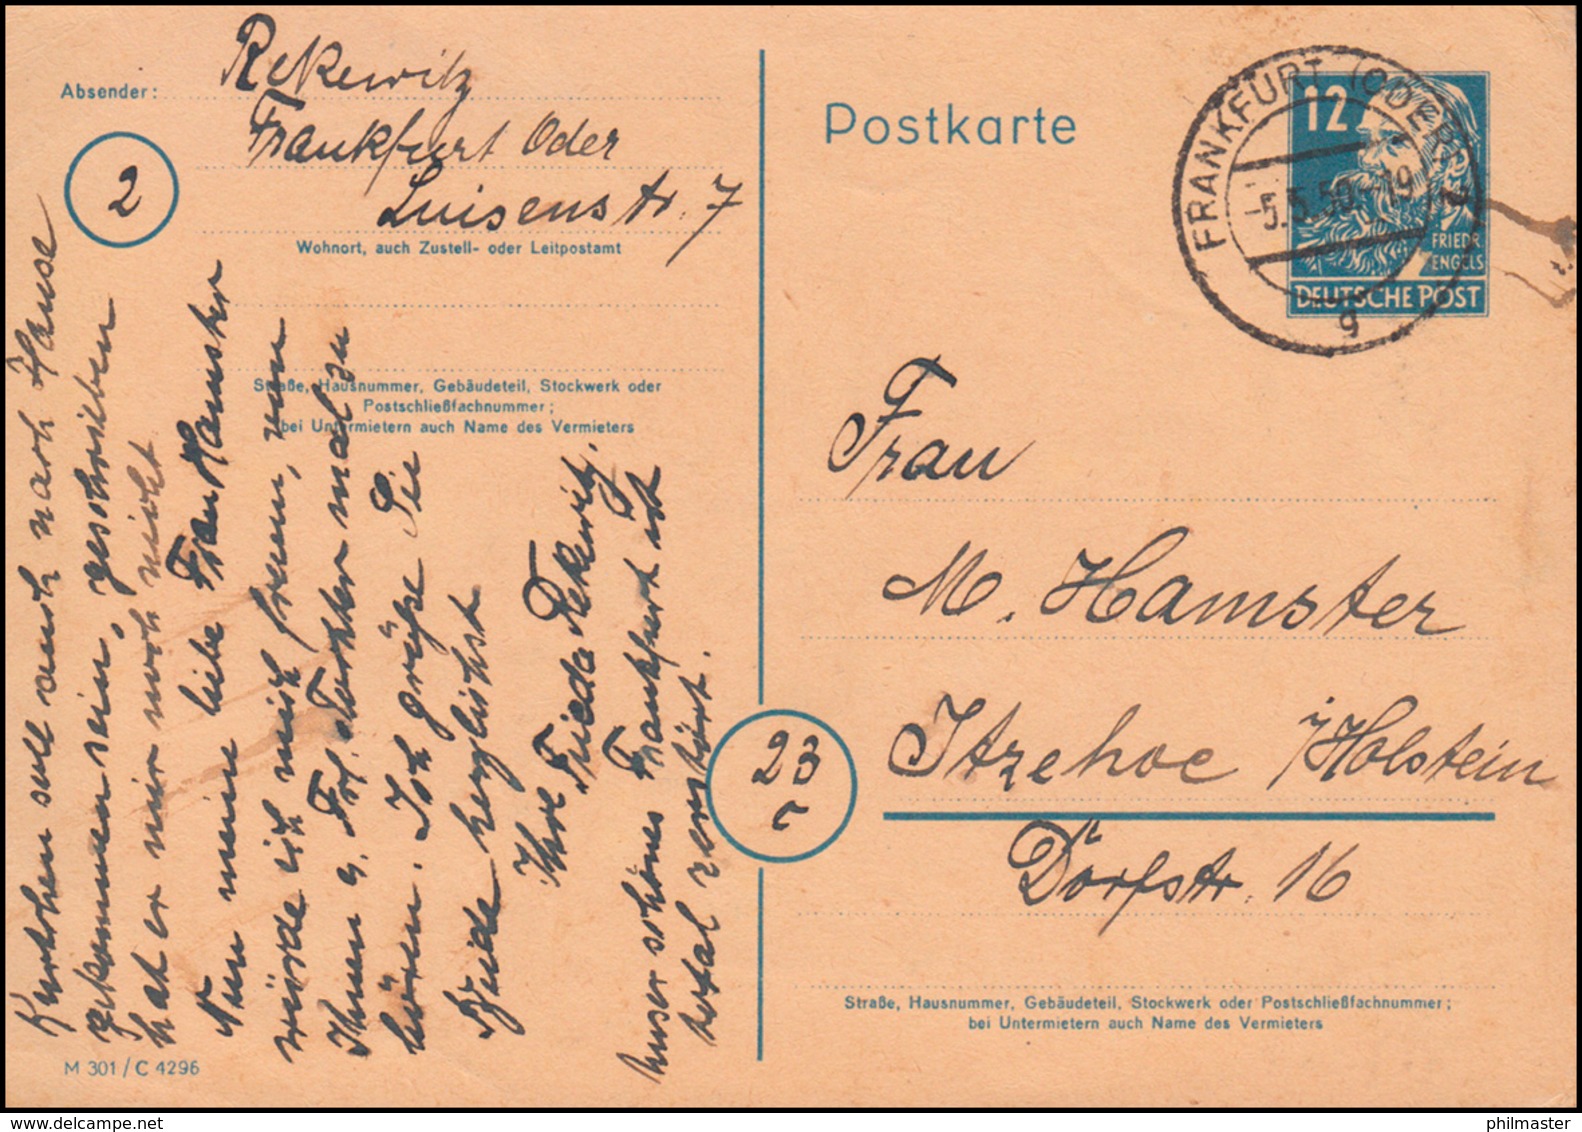 Absender:
Rekewitz
Frankfurt Oder
Luisenstr. 7
2
Wohnort, auch Zustell- oder Leitpostamt
Straße, Hausnummer, Gebäudeteil, Stockwerk oder
Postschließfachnummer;
bei Untermietern auch Name des Vermieters
Kurtchen soll auch nach Hause
gekommen sein, geschrieben
hat er mir noch nicht
Nun meine liebe Frau Hamster
würde ich mich freuen, von
Ihnen u. Frl. mal zu
hören. Ich grüße Sie
Beide herzlichst
Ihre Frieda Rekewitz.
Unser schönes Frankfurt ist
total zerstört.
M 301 / C 4296
Postkarte
12
FRIEDR
ENGELS
DEUTSCHE POST
FRANKFURT (ODER) 2
-5.5.50.-19
g
Frau
M. Hamster
23
Itzehoe i/Holstein
Dörfstr. 16
Straße, Hausnummer, Gebäudeteil, Stockwerk oder Postschließfachnummer;
bei Untermietern auch Name des Vermieters
philmaster